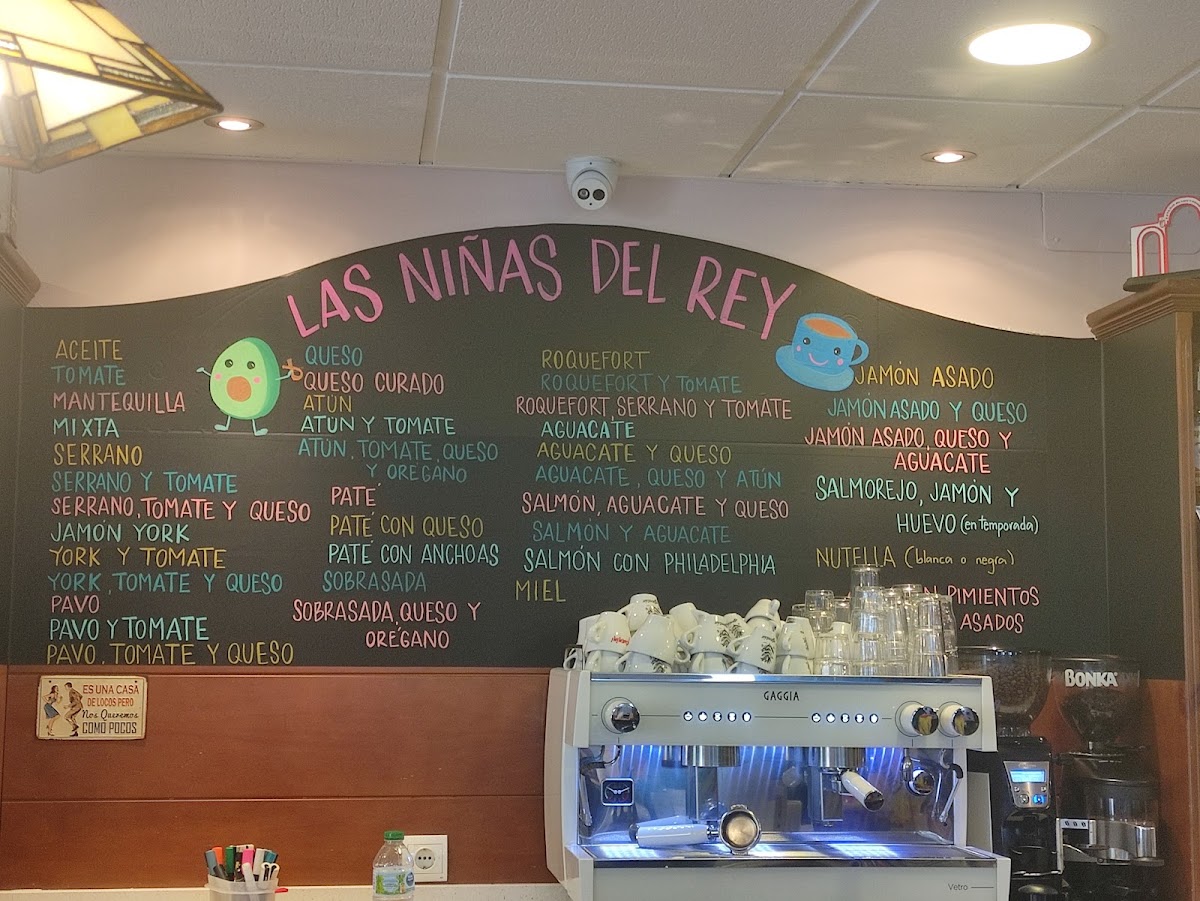 LAS NIÑAS DEL REY
ACEITE
TOMATE
MANTEQUILLA
MIXTA
SERRANO
SERRANO Y TOMATE
SERRANO, TOMATE Y QUESO
JAMÓN YORK
YORK Y TOMATE
YORK, TOMATE Y QUESO
PAVO
PAVO Y TOMATE
PAVO, TOMATE Y QUESO
QUESO
QUESO CURADO
ATÚN
ATÚN Y TOMATE
ATÚN, TOMATE, QUESO
Y ORÉGANO
PATÉ
PATÉ CON QUESO
PATÉ CON ANCHOAS
SOBRASADA
SOBRASADA, QUESO Y
ORÉGANO
ROQUEFORT
ROQUEFORT Y TOMATE
ROQUEFORT, SERRANO Y TOMATE
AGUACATE
AGUACATE Y QUESO
AGUACATE, QUESO Y ATÚN
SALMÓN, AGUACATE Y QUESO
SALMÓN Y AGUACATE
SALMÓN CON PHILADELPHIA
MIEL
JAMÓN ASADO
JAMÓN ASADO Y QUESO
JAMÓN ASADO, QUESO Y
AGUACATE
SALMOREJO, JAMÓN Y
HUEVO (en temporada)
NUTELLA (blanca o negra)
PIMIENTOS
ASADOS
ES UNA CASA
DE LOCOS PERO
Nos Queremos
COMO POCOS
GAGGIA
BONKA
Vetro